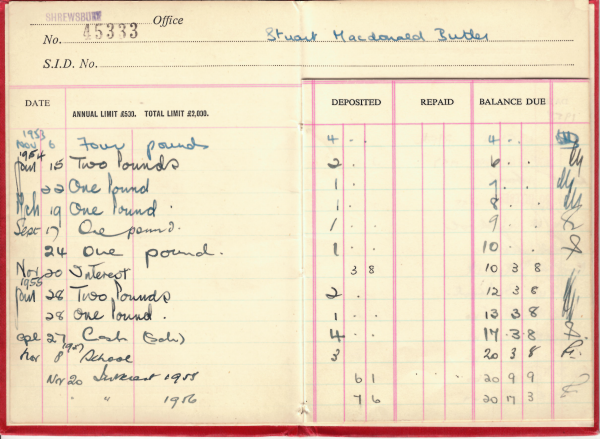 SHREWSBURY Office
No. 45333 Stuart Macdonald Butler
S.I.D. No.
DATE ANNUAL LIMIT £500. TOTAL LIMIT £2,000. DEPOSITED REPAID BALANCE DUE
1953
Nov 6 Four pounds 4 . . 4 . .
1954
Jan 15 Two Pounds 2 . . 6 . .
22 One Pound 1 . . 7 . .
Mch 19 One Pound 1 . . 8 . .
Sept 17 One pound. 1 . . 9 . .
24 One pound. 1 . . 10 . .
Nov 20 Interest 3 8 10 3 8
1955
Jan 28 Two Pounds 2 . . 12 3 8
28 One Pound. 1 . . 13 3 8
Apl 27 Cash 4 . . 17 3 8
1957
Mar 8 School 3 20 3 8
Nov 20 Interest 1955 6 1 . . . 20 9 9
" " 1956 7 6 20 17 3